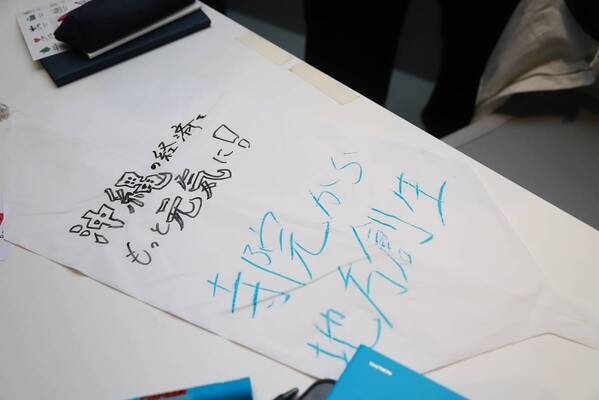 沖縄の経済を
もっと元気に!
病院から
地方創生